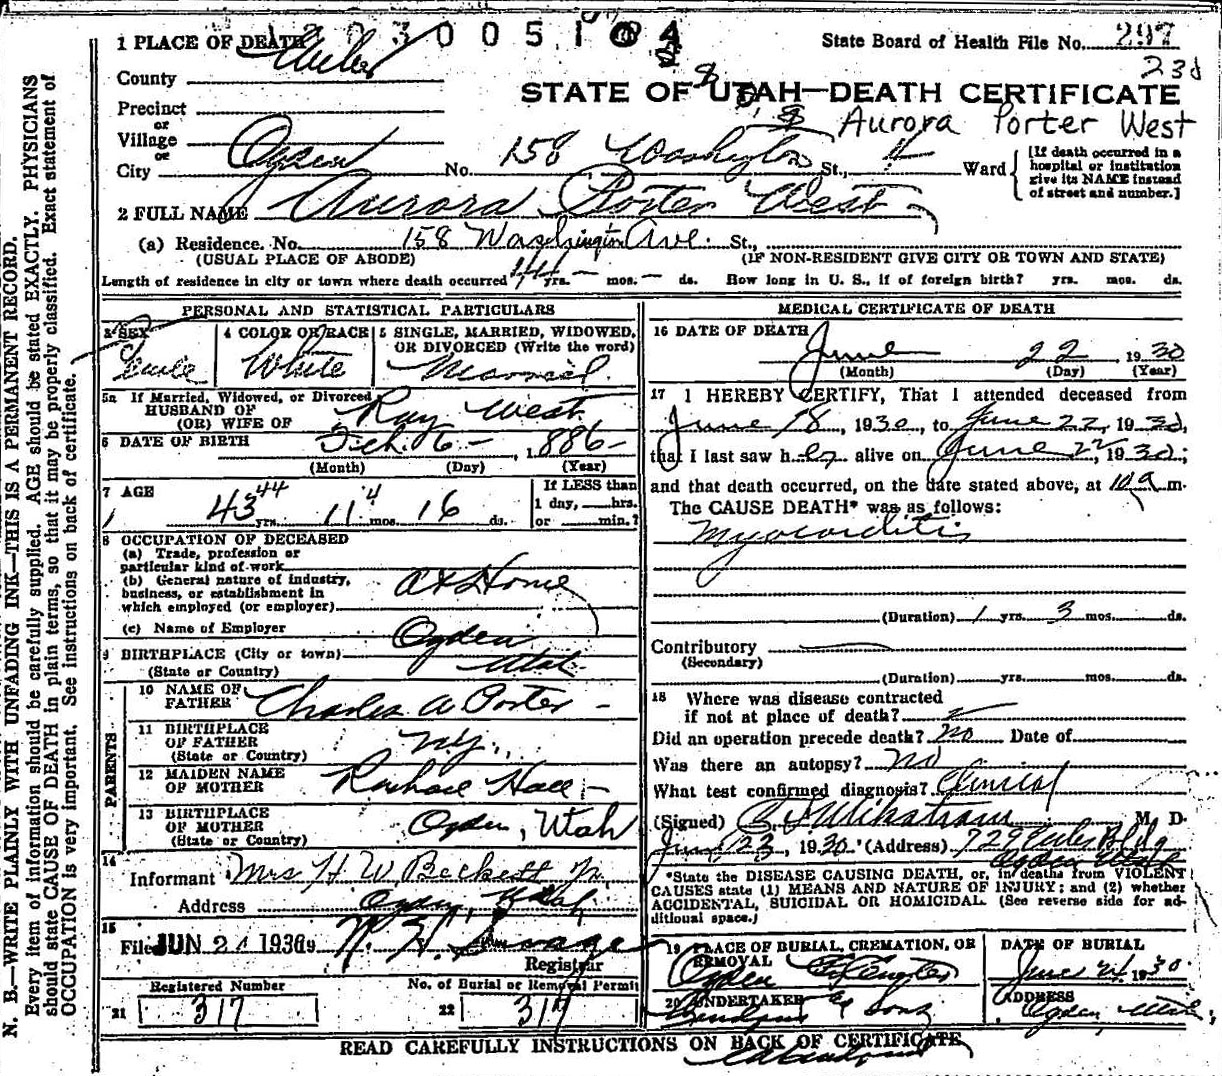 1 PLACE OF DEATH
State Board of Health File No. 297
23d
County Weber
STATE OF UTAH—DEATH CERTIFICATE
Precinct
or
Village
Aurora Porter West
or
City Ogden No. 158 Washington St., 4 Ward
[If death occurred in a hospital or institution give its NAME instead of street and number.]
2 FULL NAME Aurora Porter West
(a) Residence. No. 158 Washington Ave. St.,
(USUAL PLACE OF ABODE) (IF NON-RESIDENT GIVE CITY OR TOWN AND STATE)
Length of residence in city or town where death occurred 44 yrs. — mos. — ds. How long in U. S., if of foreign birth? yrs. mos. ds.
PERSONAL AND STATISTICAL PARTICULARS
3 SEX
4 COLOR OR RACE White
5 SINGLE, MARRIED, WIDOWED, OR DIVORCED (Write the word) Married
5a If Married, Widowed, or Divorced
HUSBAND OF
(OR) WIFE OF Ray West
6 DATE OF BIRTH Feb. 6 — , 1886 —
(Month) (Day) (Year)
7 AGE
43 44 yrs. 11 4 mos. 16 ds.
If LESS than
1 day, hrs.
or min.?
8 OCCUPATION OF DECEASED
(a) Trade, profession or
particular kind of work
(b) General nature of industry,
business, or establishment in
which employed (or employer) At Home
(c) Name of Employer
9 BIRTHPLACE (City or town) Ogden
(State or Country) Utah
PARENTS
10 NAME OF
FATHER Charles A Porter —
11 BIRTHPLACE
OF FATHER N.Y.
(State or Country)
12 MAIDEN NAME
OF MOTHER Hall —
13 BIRTHPLACE
OF MOTHER Ogden, Utah
(State or Country)
14
Informant Mrs H W Beckett Jr.
Address Ogden Utah
15
Filed JUN 2 1930
Registrar
Registered Number
21 317
No. of Burial or Removal Permit
22 317
MEDICAL CERTIFICATE OF DEATH
16 DATE OF DEATH
June 22, 1930
(Month) (Day) (Year)
17 I HEREBY CERTIFY, That I attended deceased from
June 18, 1930, to June 22, 1930,
that I last saw her alive on June 22, 1930;
and that death occurred, on the date stated above, at 10 a m.
The CAUSE DEATH* was as follows:
Myocarditis
(Duration) 1 yrs. 3 mos. ds.
Contributory
(Secondary)
(Duration) yrs. mos. ds.
18 Where was disease contracted
if not at place of death?
Did an operation precede death? No Date of
Was there an autopsy? No
What test confirmed diagnosis? Clinical
(Signed) M. D.
June 23, 1930 (Address) 729 Bldg
Ogden Utah
*State the DISEASE CAUSING DEATH, or, in deaths from VIOLENT
CAUSES state (1) MEANS AND NATURE OF INJURY; and (2) whether
ACCIDENTAL, SUICIDAL OR HOMICIDAL. (See reverse side for ad-
ditional space.)
19 PLACE OF BURIAL, CREMATION, OR
REMOVAL
Ogden
DATE OF BURIAL
June 24 1930
20 UNDERTAKER
& Sons
ADDRESS
Ogden, Utah,
READ CAREFULLY INSTRUCTIONS ON BACK OF CERTIFICATE
N. B.—WRITE PLAINLY WITH UNFADING INK—THIS IS A PERMANENT RECORD.
Every item of information should be carefully supplied. AGE should be stated EXACTLY. PHYSICIANS
should state CAUSE OF DEATH in plain terms, so that it may be properly classified. Exact statement of
OCCUPATION is very important. See instructions on back of certificate.